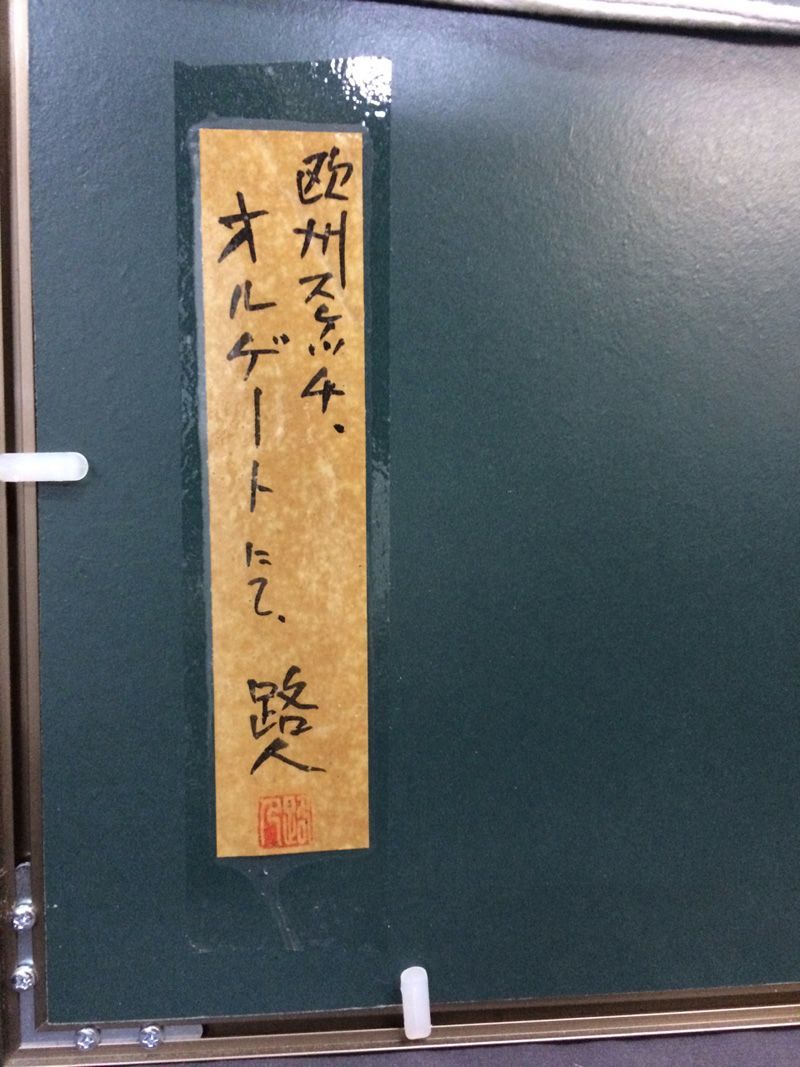 欧州スケッチ、
オルゲートにて、
路人